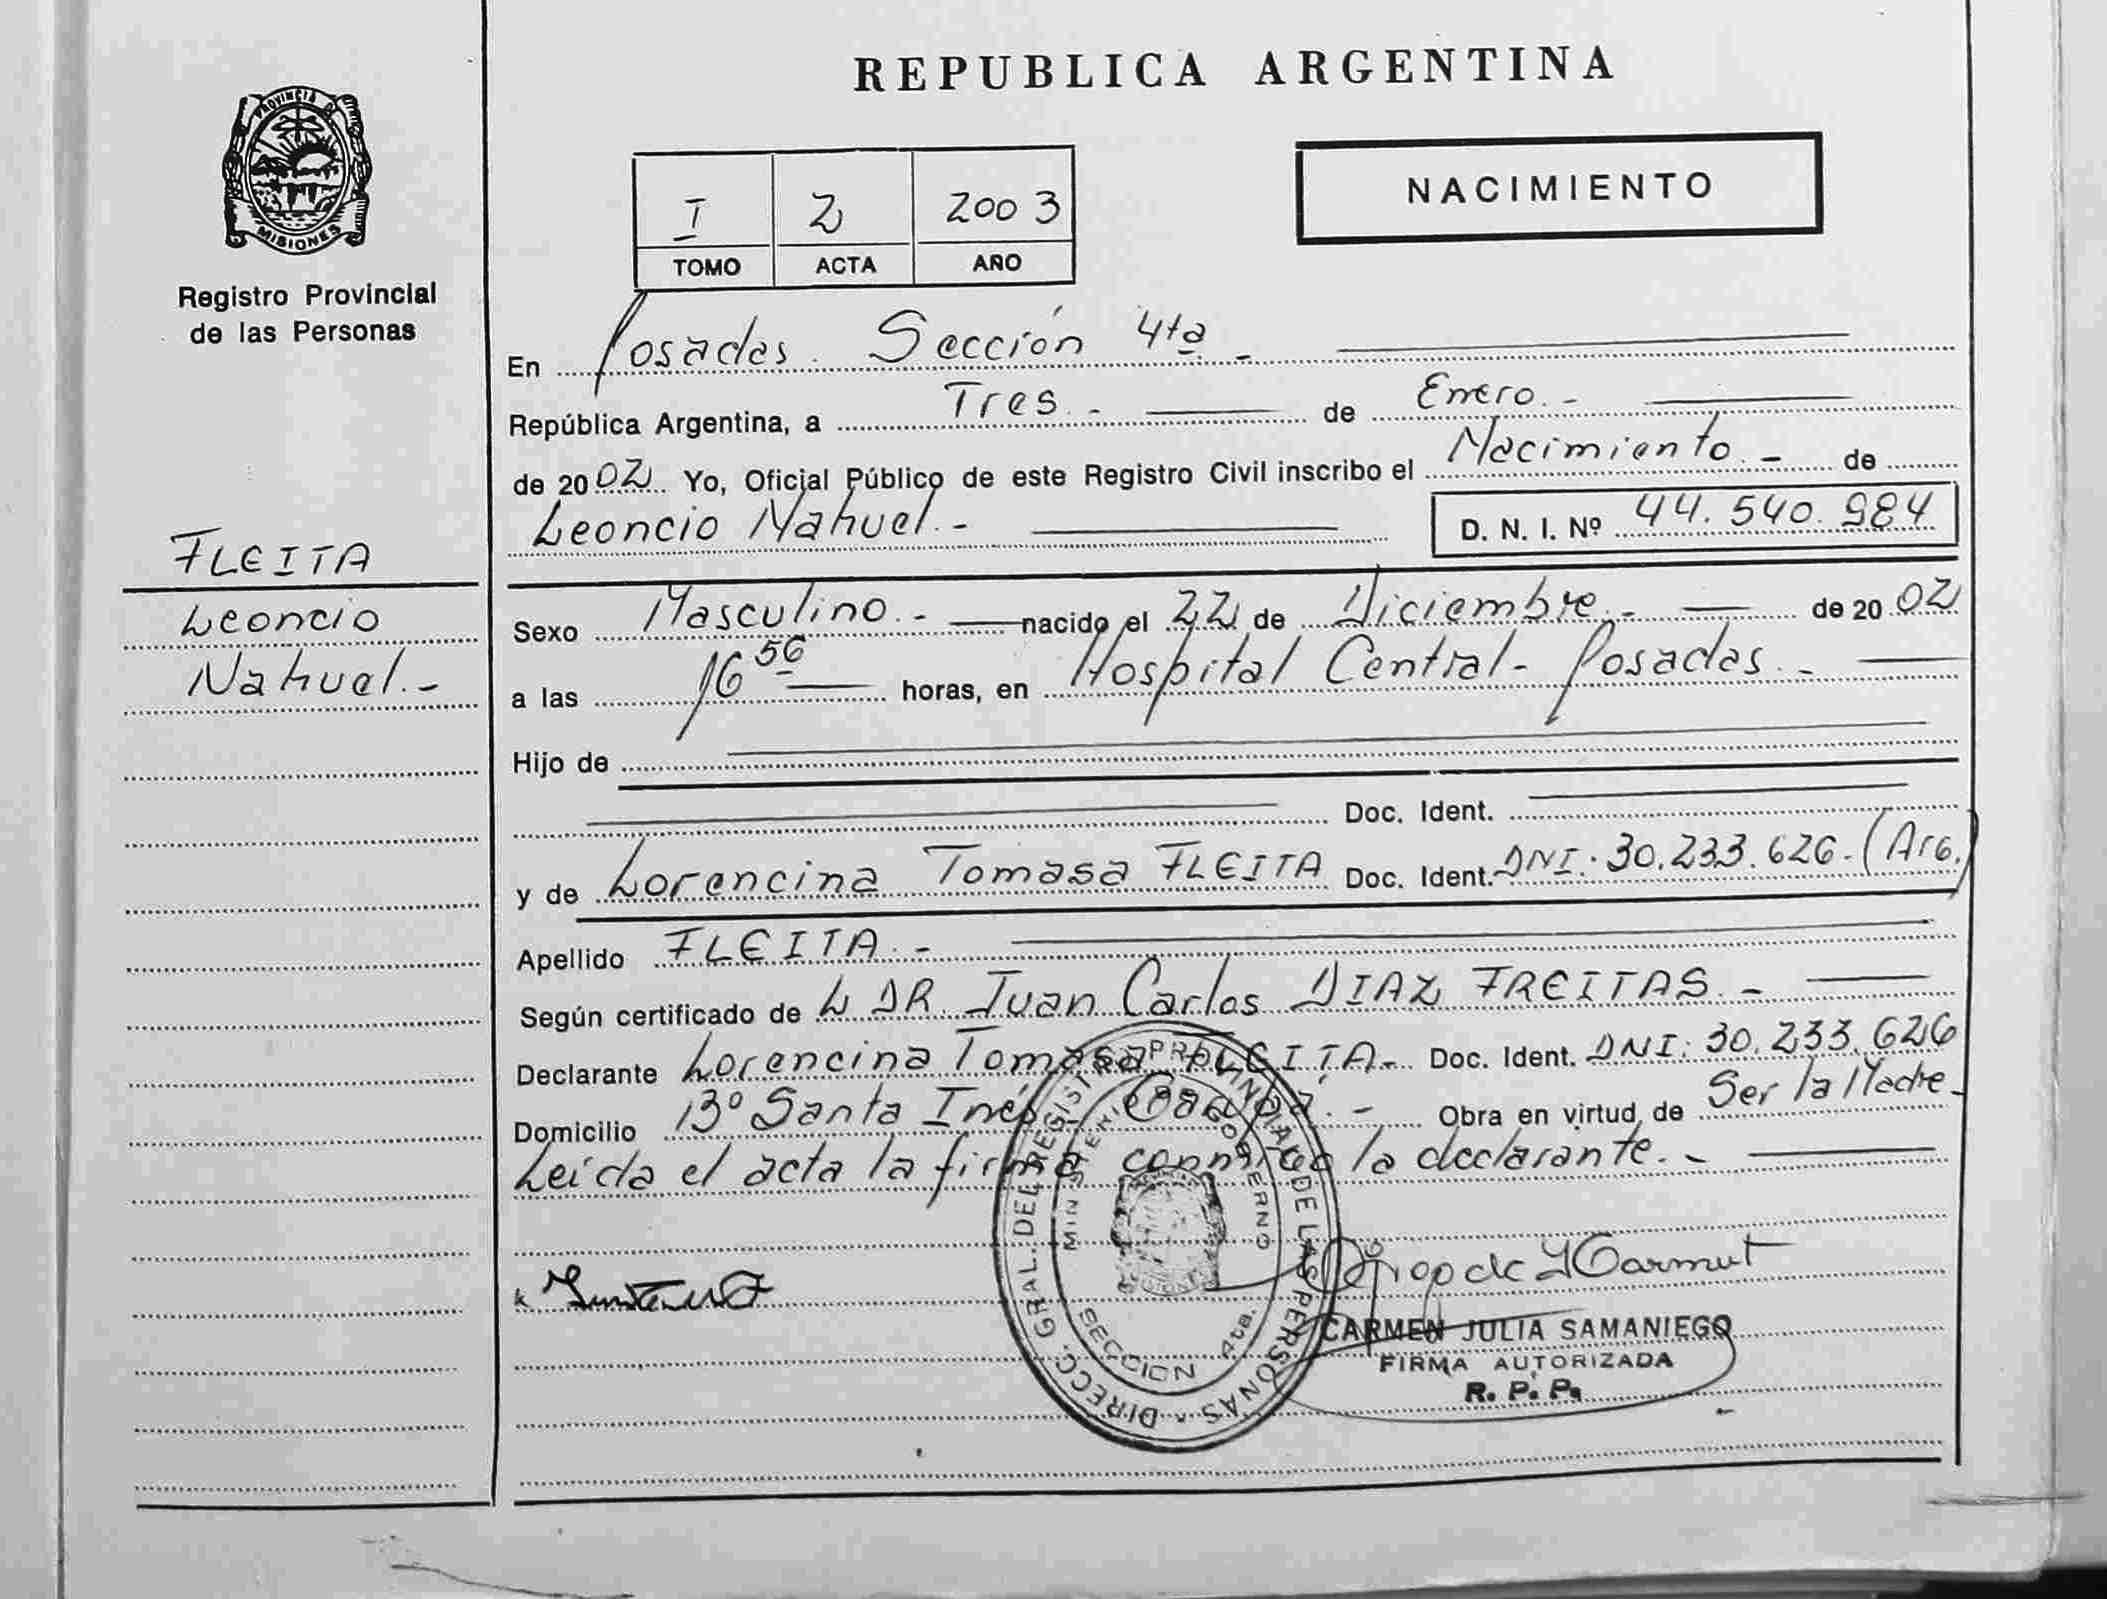 REPUBLICA ARGENTINA
PROVINCIA DE
MISIONES
Registro Provincial
de las Personas
I 2 2003
TOMO ACTA AÑO
NACIMIENTO
En Posadas. Sección 4ta -
República Argentina, a Tres.- de Enero.-
de 2002 Yo, Oficial Público de este Registro Civil inscribo el Nacimiento.- de
Leoncio Nahuel.- D. N. I. Nº 44.540.984
FLEITA
Leoncio
Nahuel.-
Sexo Masculino.- nacido el 22 de Diciembre.- de 2002
a las 16 56 horas, en Hospital Central- Posadas.-
Hijo de
Doc. Ident.
y de Lorencina Tomasa FLEITA Doc. Ident. DNI: 30.233.626.(Arg.)
Apellido FLEITA.-
Según certificado de L DR. Juan Carlos DIAZ FREITAS.-
Declarante Lorencina Tomasa FLEITA.- Doc. Ident. DNI: 30.233.626
Domicilio Bº Santa Inés, Obra en virtud de Ser la Madre-
Leída el acta la firma conmigo la declarante.-
DIRECC. GRAL. DEL REGISTRO PROVINCIAL DE LAS PERSONAS
MINISTERIO DE GOBIERNO
SECCION 4ta.
CARMEN JULIA SAMANIEGO
FIRMA AUTORIZADA
R. P. P.